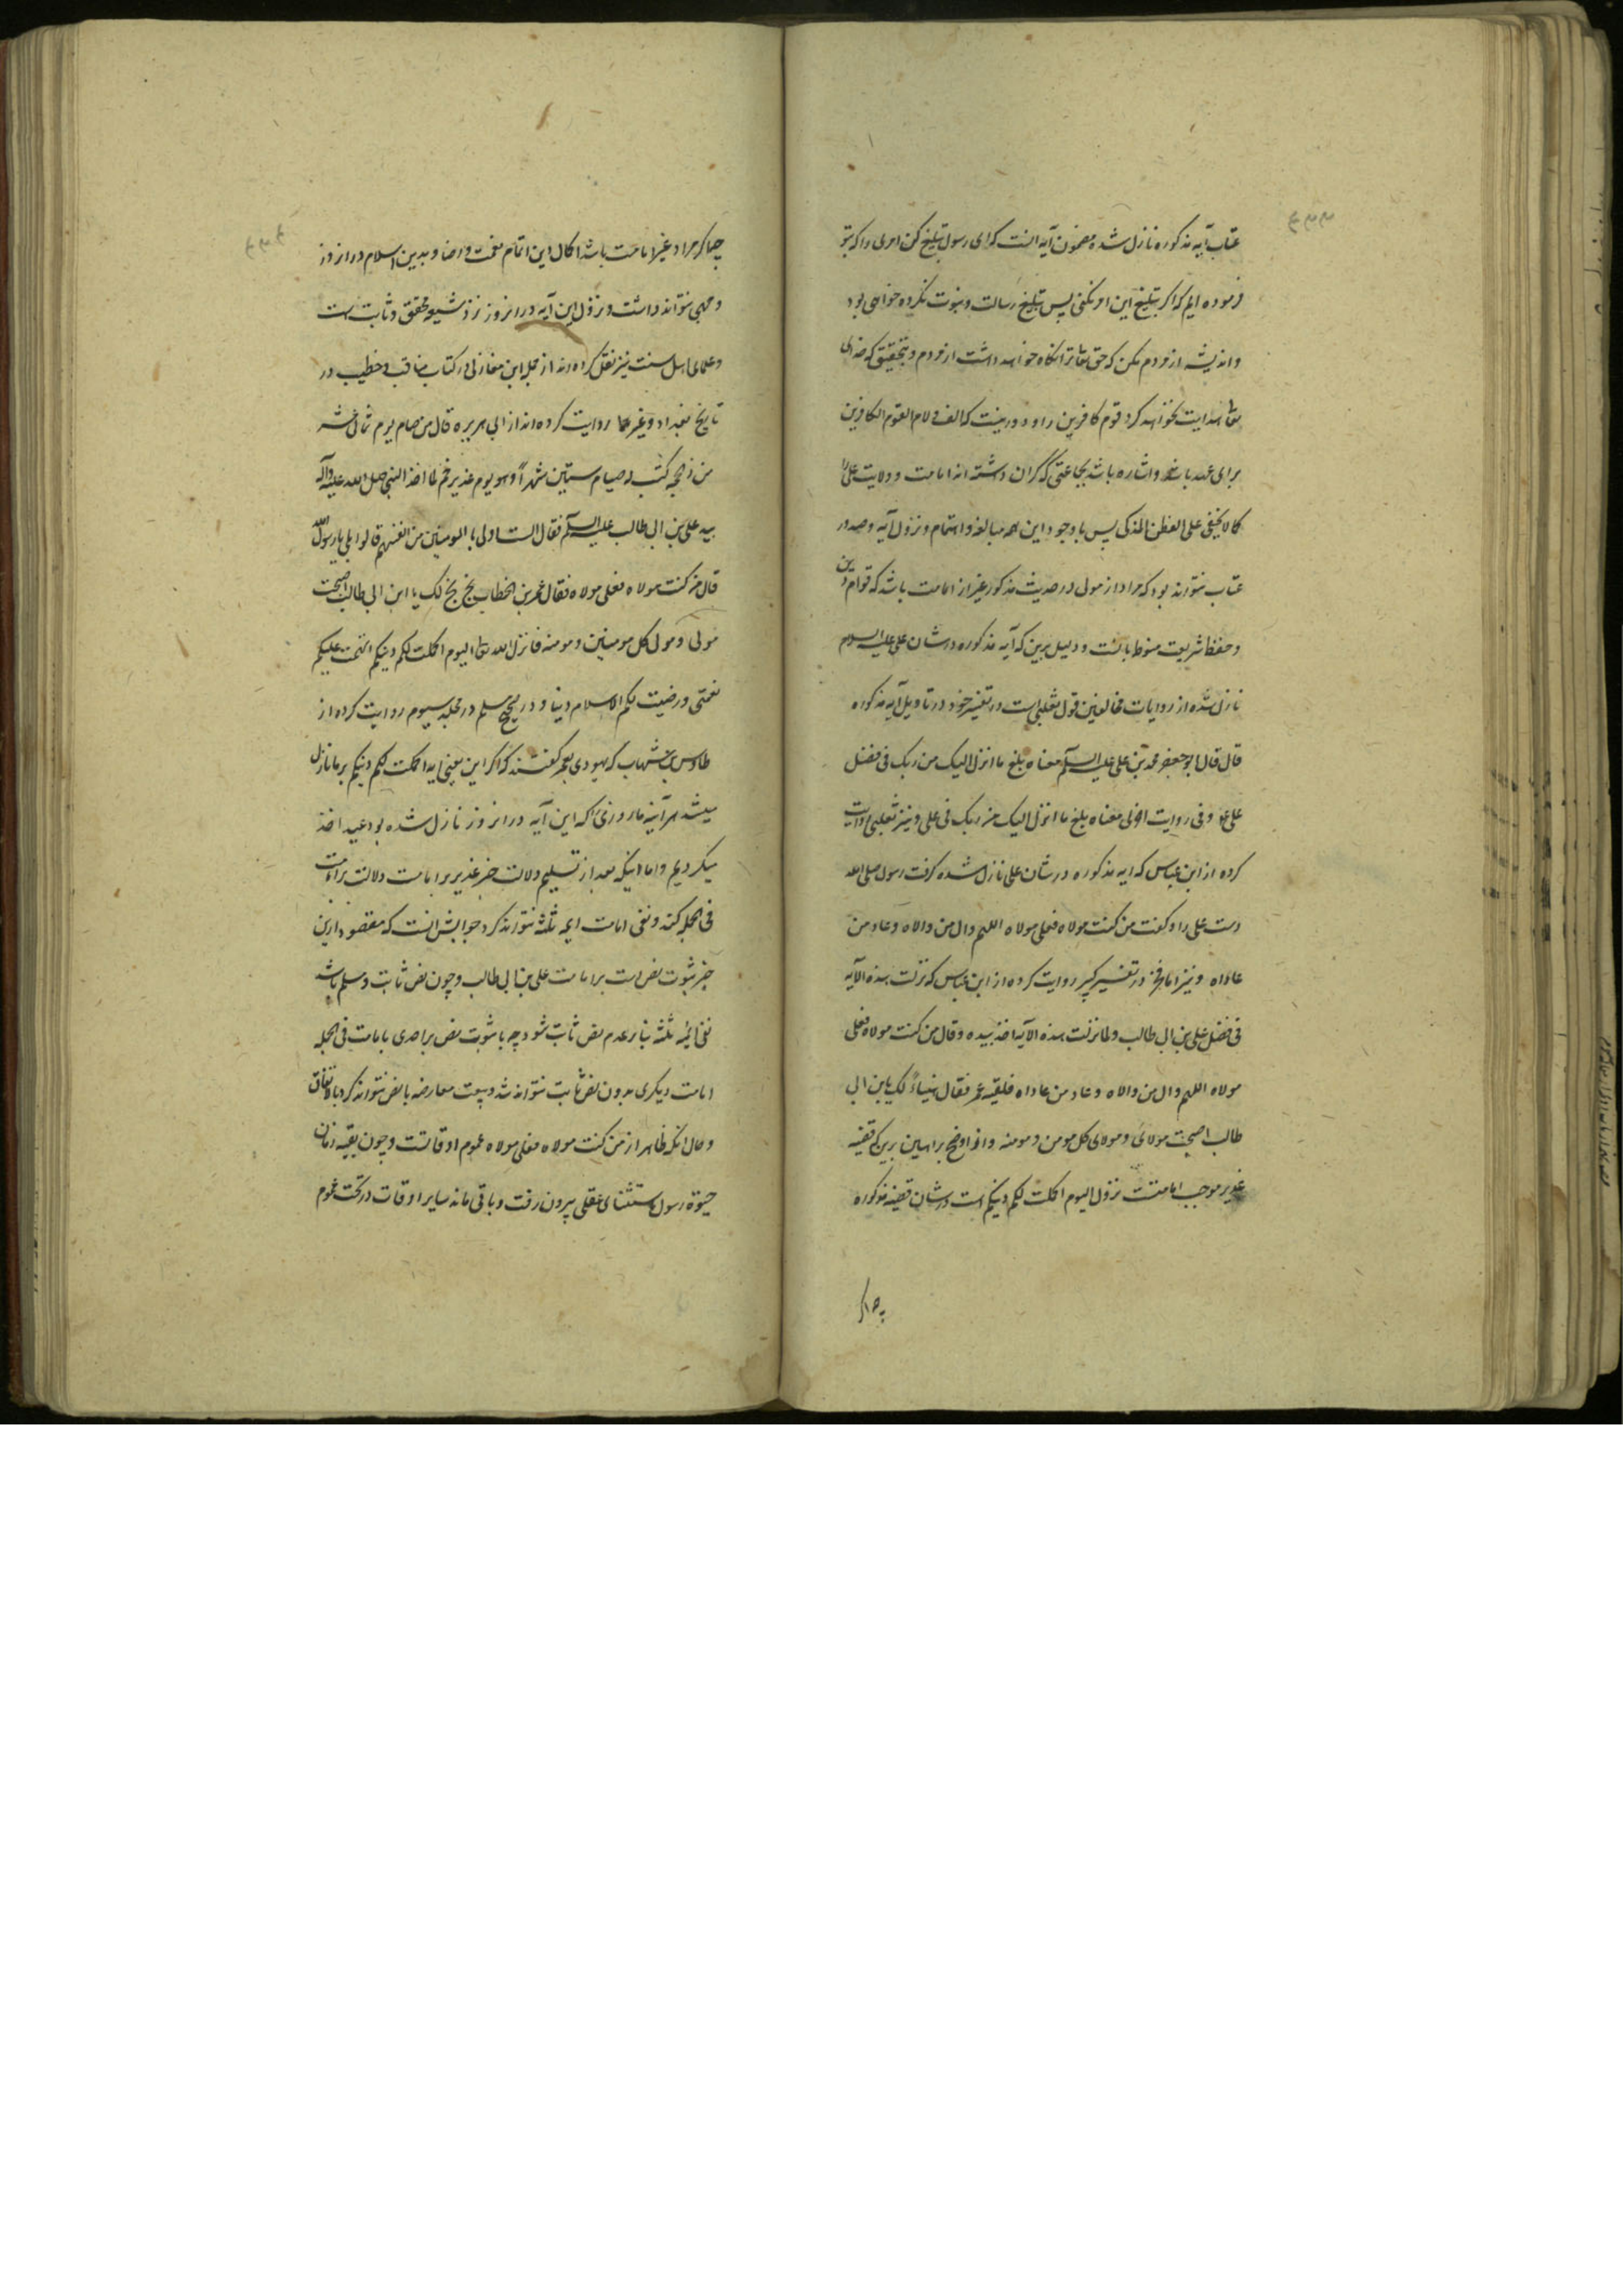 عتاب آیه مذکوره نازل شده مضمون آیه انست که ای رسول تبلیغ کن امری را که بتو
فرموده ایم که اگر تبلیغ این امر نکنی پس تبلیغ رسالت و نبوت نکرده خواهی بود
و اندیشه از مردم مکن که حق تعا ترا نگاه خواهد داشت از مردم و بتحقیق که خدای
تعا هدایت نخواهد کرد قوم کافرین را و دور نیست که الف و لام القوم الکافرین
برای عهد باشد و اشاره باشد بجماعتی که گران داشته اند امامت و ولایت علی را
کما لا یخفی علی الفطن الذکی پس با وجود این همه مبالغه و اهتمام و نزول آیه و صدور
عتاب نتواند بود که مراد از مولی در حدیث مذکور غیر از امامت باشد که قوام دین
و حفظ شریعت منوط بانست و دلیل برین که آیه مذکوره در شان علی علیه السلام
نازل شده از روایات مخالفین قول ثعلبی است در تفسیر خود در تاویل آیه مذکوره
قال قال ابو جعفر محمد بن علی علیه السلم معناه بلغ ما انزل الیک من ربک فی فضل
علی ع و فی روایت اخری معناه بلغ ما انزل الیک من ربک فی علی و نیز ثعلبی روایت
کرده از ابن عباس که ایه مذکوره در شان علی نازل شده گرفت رسول صلی الله
دست علی را و گفت من کنت مولاه فعلی مولاه اللهم وال من والاه و عاد من
عاداه و نیز امام فخر در تفسیر کبیر روایت کرده از ابن عباس که نزلت هذه الآیه
فی فضل علی بن ابی طالب و لما نزلت هذه الآیه اخذ بیده و قال من کنت مولاه فعلی
مولاه اللهم وال من والاه و عاد من عاداه فلقیه عمر فقال هنیاءً لک یابن ابی
طالب اصبحت مولای و مولای کل مومن و مومنه و از اوضح براهین برین که قضیه
غدیر موجب امامتست نزول الیوم اکملت لکم دینکم است در شان قضیه مذکوره
چه اگر
چه اگر مراد غیر امامت باشد اکمال دین اتمام نعمت و رضا و بدین اسلام در انروز
وجهی نتواند داشت و نزول این آیه در انروز نزد شیعه محقق و ثابت است
و علمای اهل سنت نیز نقل کرده اند از جمله ابن مغازلی در کتاب مناقب و خطیب در
تاریخ بغداد و غیرهما روایت کرده اند از ابی هریره قال من صام یوم ثمانی عشر
من ذی الحجه کتب له صیام ستین شهراً و هو یوم غدیر خم لما اخذ النبی صلی الله علیه و آله
بید علی بن ابی طالب علیه السلم فقال الست اولی بالمومنین من انفسهم قالوا بلی یا رسول الله
قال من کنت مولاه فعلی مولاه فقال عمر بن الخطاب بخ بخ لک یا ابن ابی طالب اصبحت
مولی و مولی کل مومنین و مومنه فانزل الله تعا الیوم اکملت لکم دینکم و اتممت علیکم
نعمتی و رضیت لکم الاسلام دینا و در صحیح مسلم در مجلد سیوم روایت کرده از
طاوس بن شهاب که یهودی بعمر گفتند که اگر این یعنی ایه اکملت لکم دینکم بر ما نازل
میشد هر آینه ما روزی را که این آیه در انروز نازل شده بود عید اخذ
میکردیم و اما اینکه بعد از تسلیم دلالت خبر غدیر بر امامت دلالت بر امامت
فی الجمله کند و نفی امامت ایمه ثلثه نتواند کرد جوابش انست که مقصود ازین
خبر ثبوت نص است بر امامت علی بن ابی طالب و چون نص ثابت و مسلم باشد
نفی ایمه ثلثه بنابر عدم نص ثابت شود چه با ثبوت نص بر احدی بامامت فی الجمله
امامت دیگری بدون نص ثابت نتواند شد و بیعت معارضه با نص نتواند کرد بالاتفاق
و حال انکه ظاهر از من کنت مولاه فعلی مولاه عموم اوقاتست و چون بقیه زمان
حیوة رسول باستثنای عقلی بیرون رفت و باقی ماند سایر اوقات در تحت عموم